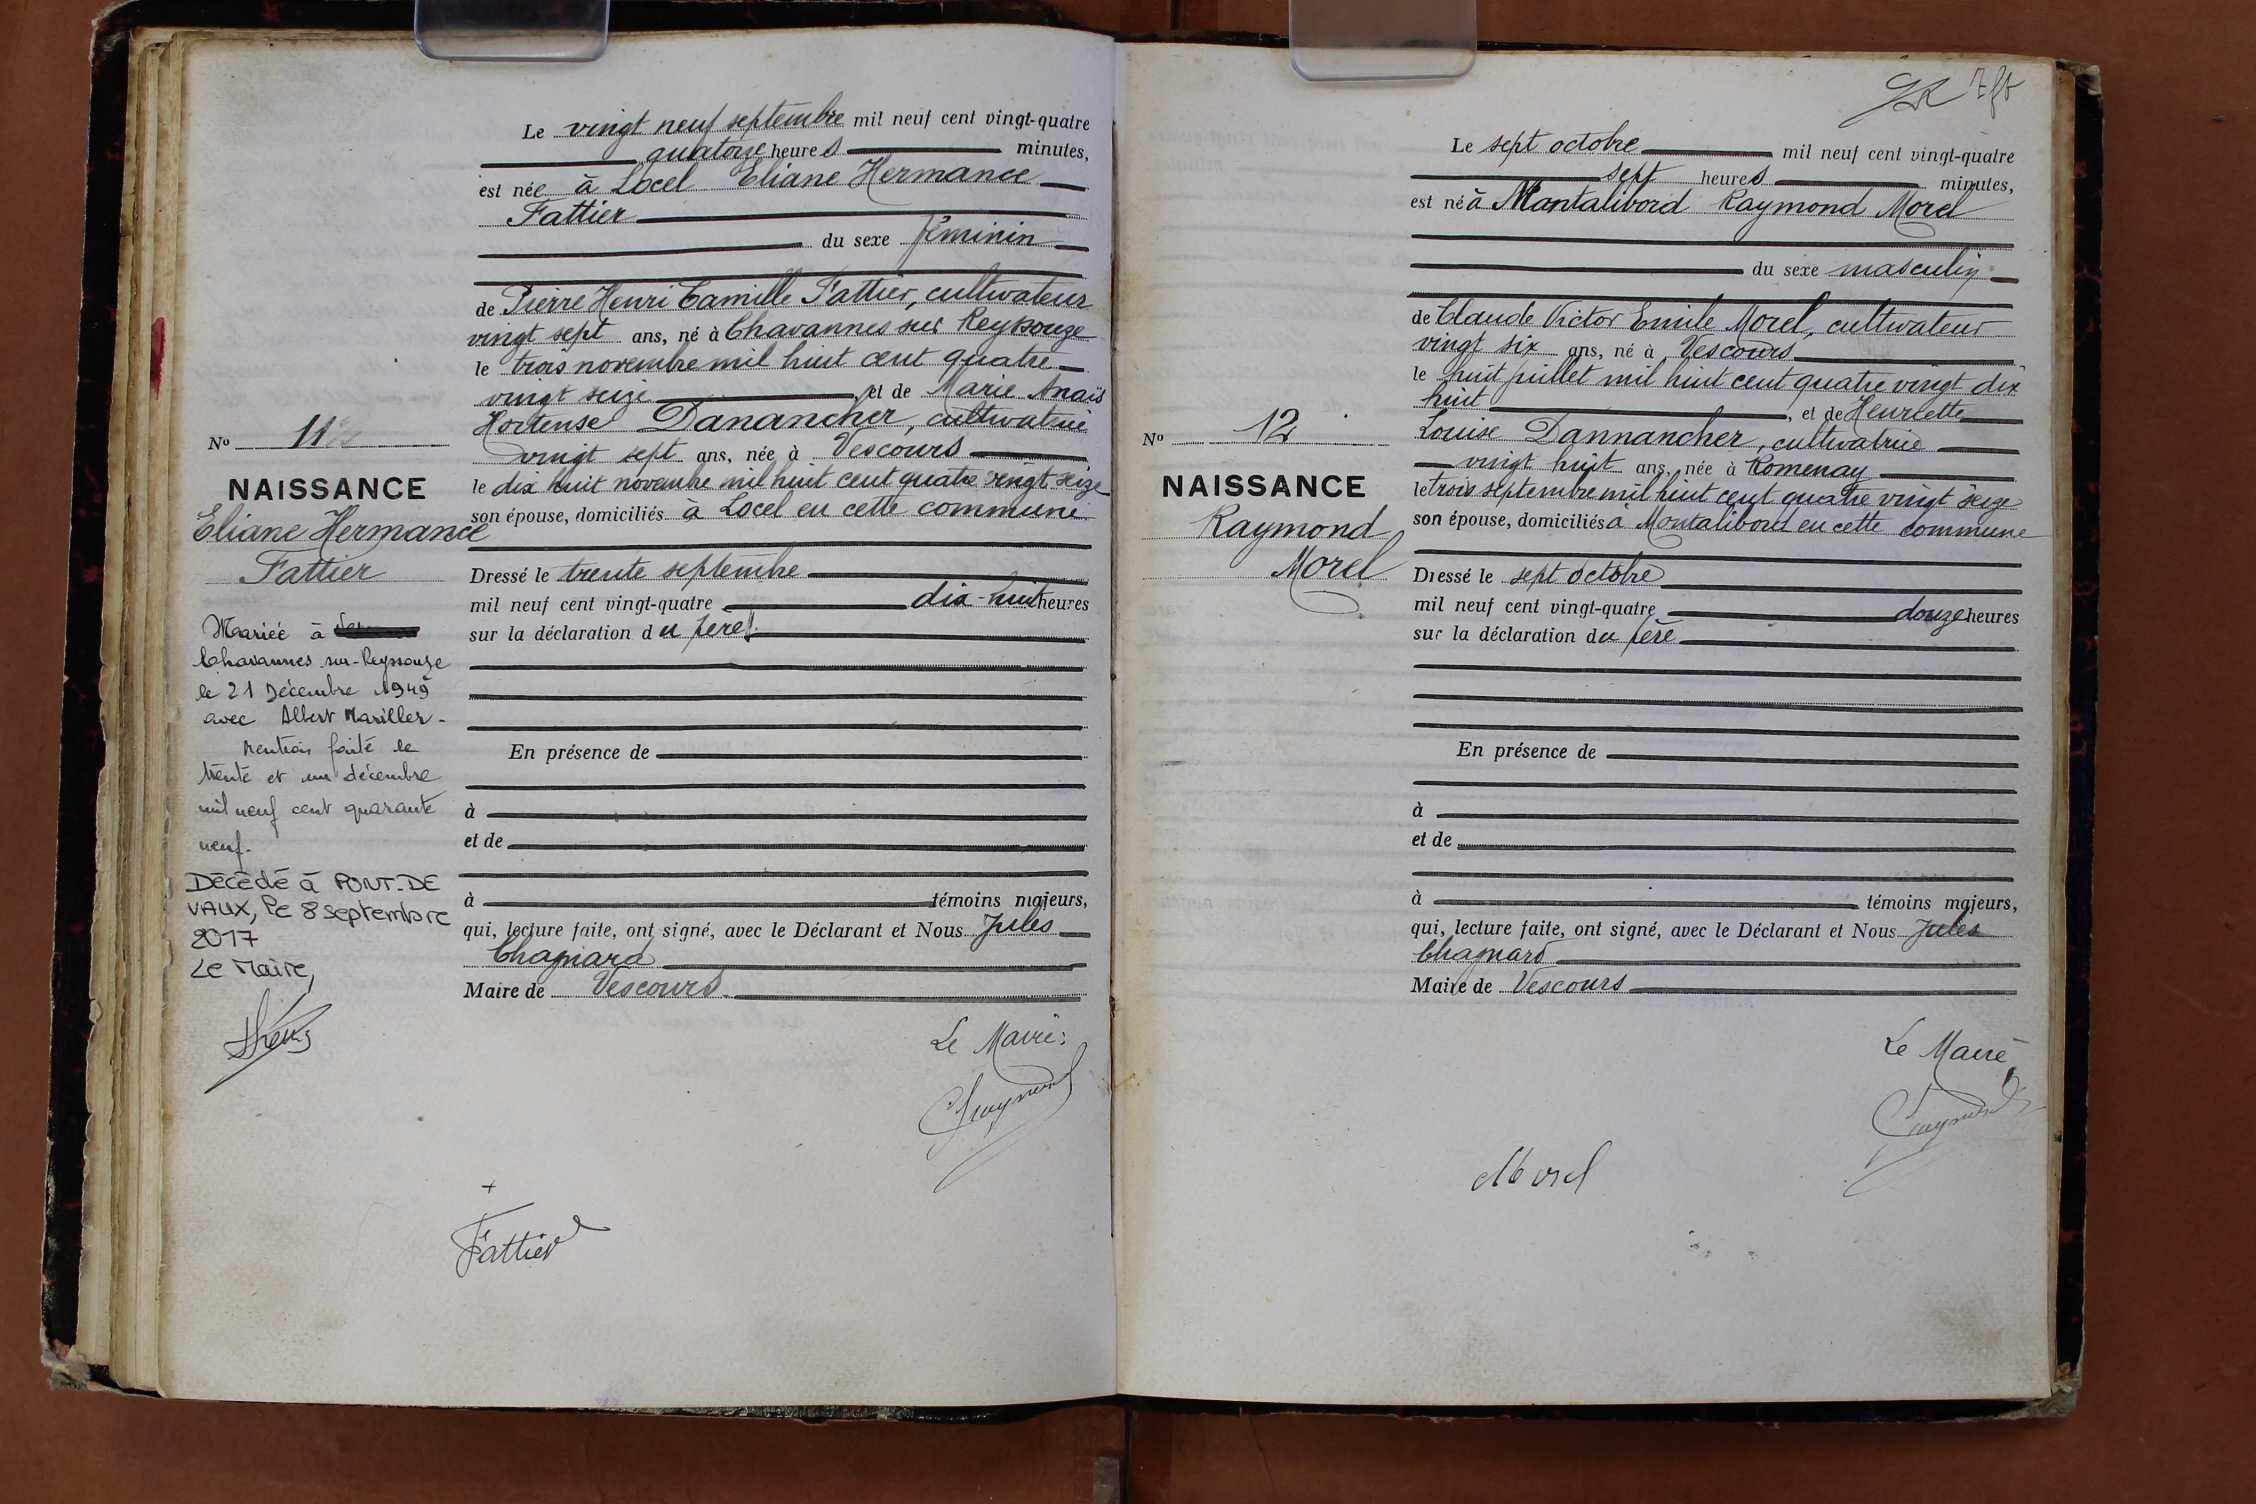 Le vingt neuf septembre mil neuf cent vingt-quatre
quatorze heures minutes,
est née à Locel Eliane Hermance
Fattier
du sexe féminin
de Pierre Henri Camille Fattier, cultivateur
vingt sept ans, né à Chavannes sur Reyssouze
le trois novembre mil huit cent quatre
vingt seize et de Marie Anaïs
Hortense Danancher, cultivatrice
vingt sept ans, née à Vescours
le dix huit novembre mil huit cent quatre vingt seize
son épouse, domiciliés à Locel en cette commune
Dressé le trente septembre
mil neuf cent vingt-quatre dix-huit heures
sur la déclaration du père
En présence de
à
et de
à témoins majeurs,
qui, lecture faite, ont signé, avec le Déclarant et Nous Jules
Chagnard
Maire de Vescours
Le Maire:
Fattier
No 11
NAISSANCE
Eliane Hermance
Fattier
Mariée à
Chavannes-sur-Reyssouze
le 21 Décembre 1949
avec Albert Mariller.
Mention faite le
trente et un décembre
mil neuf cent quarante
neuf.
Décédé à PONT-DE
VAUX, le 8 septembre
2017
Le Maire,
Le sept octobre mil neuf cent vingt-quatre
sept heures minutes,
est né à Montalibord Raymond Morel
du sexe masculin
de Claude Victor Emile Morel, cultivateur
vingt six ans, né à Vescours
le huit juillet mil huit cent quatre vingt dix
huit, et de Henriette
Louise Dannancher, cultivatrice
vingt huit ans, née à Romenay
le trois septembre mil huit cent quatre vingt seize
son épouse, domiciliés à Montalibord en cette commune
Dressé le sept octobre
mil neuf cent vingt-quatre douze heures
sur la déclaration du père
En présence de
à
et de
à témoins majeurs,
qui, lecture faite, ont signé, avec le Déclarant et Nous Jules
Chagnard
Maire de Vescours
Le Maire
Morel
No 12
NAISSANCE
Raymond
Morel